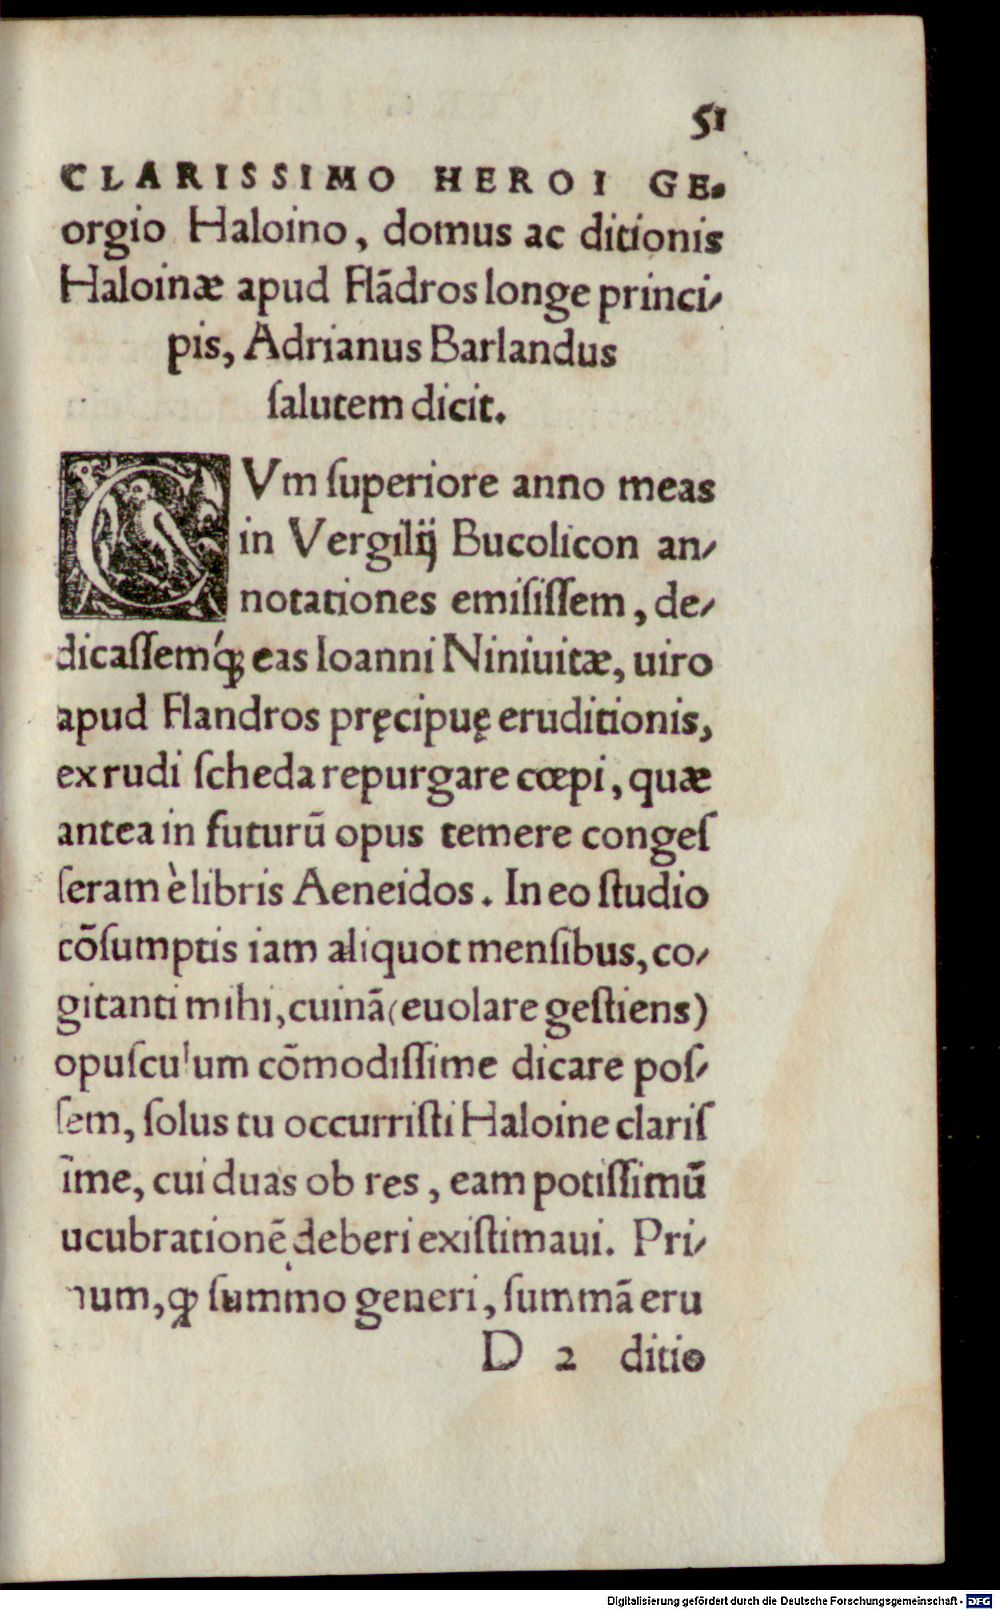 51
CLARISSIMO HEROI GE-
orgio Haloino, domus ac ditionis
Haloinæ apud Flādros longe princi-
pis, Adrianus Barlandus
ſalutem dicit.
CVm ſuperiore anno meas
in Vergilij Bucolicon an-
notationes emiſiſſem, de-
dicaſſemq́; eas Ioanni Niniuitæ, uiro
apud Flandros pręcipuę eruditionis,
ex rudi ſcheda repurgare cœpi, quæ
antea in futurū opus temere congeſ
ſeram è libris Aeneidos. In eo ſtudio
cōſumptis iam aliquot menſibus, co-
gitanti mihi, cuinā (euolare geſtiens)
opuſculum cōmodiſſime dicare poſ-
ſem, ſolus tu occurriſti Haloine clariſ
ſime, cui duas ob res, eam potiſſimū
lucubrationē deberi exiſtimaui. Pri-
mum, ꝙ ſummo generi, ſummā eru
D 2 ditio
Digitalisierung gefördert durch die Deutsche Forschungsgemeinschaft - DFG